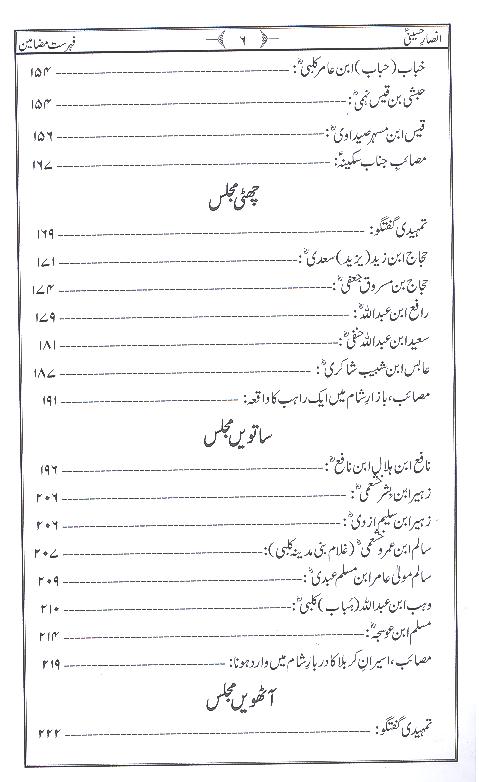 انصارِ حسینیؑ ۶ فہرست مضامین
خباب (حباب) ابن عامر کلبیؓ: ۱۵۴
حبشی بن قیس نہمیؓ: ۱۵۴
قیس ابن مسہر صیداویؓ: ۱۵۶
مصائب جناب سکینہؑ: ۱۶۷
چھٹی مجلس
تمہیدی گفتگو: ۱۶۹
حجاج ابن زید (یزید) سعدیؓ: ۱۷۱
حجاج بن مسروق جعفیؓ: ۱۷۴
رافع ابن عبداللہؓ: ۱۷۹
سعید ابن عبداللہ حنفیؓ: ۱۸۱
عابس ابن شبیب شاکریؓ: ۱۸۷
مصائب، بازارِ شام میں ایک راہب کا واقعہ: ۱۹۱
ساتویں مجلس
نافع ابن ہلال ابن نافعؓ: ۱۹۶
زہیر ابن بشر خثعمیؓ: ۲۰۶
زہیر ابن سلیم ازدیؓ: ۲۰۶
سالم ابن عمرو خثعمیؓ (غلام بنی مدینہ کلبی): ۲۰۷
سالم مولیٰ عامر ابن مسلم عبدیؓ: ۲۰۹
وہب ابن عبداللہ (حُباب) کلبیؓ: ۲۱۰
مسلم ابن عوسجہؓ: ۲۱۴
مصائب، اسیرانِ کربلا کا دربارِ شام میں وارد ہونا: ۲۱۹
آٹھویں مجلس
تمہیدی گفتگو: ۲۲۲